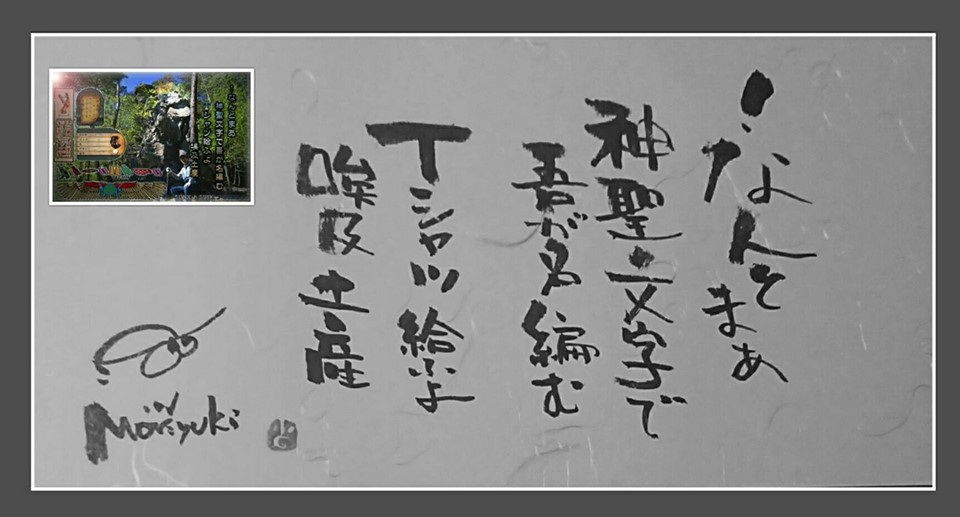 ！なんとまあ
神聖文字で
吾が名編む
Tシャツ給ふよ
唉及土産
in
Moriyuki